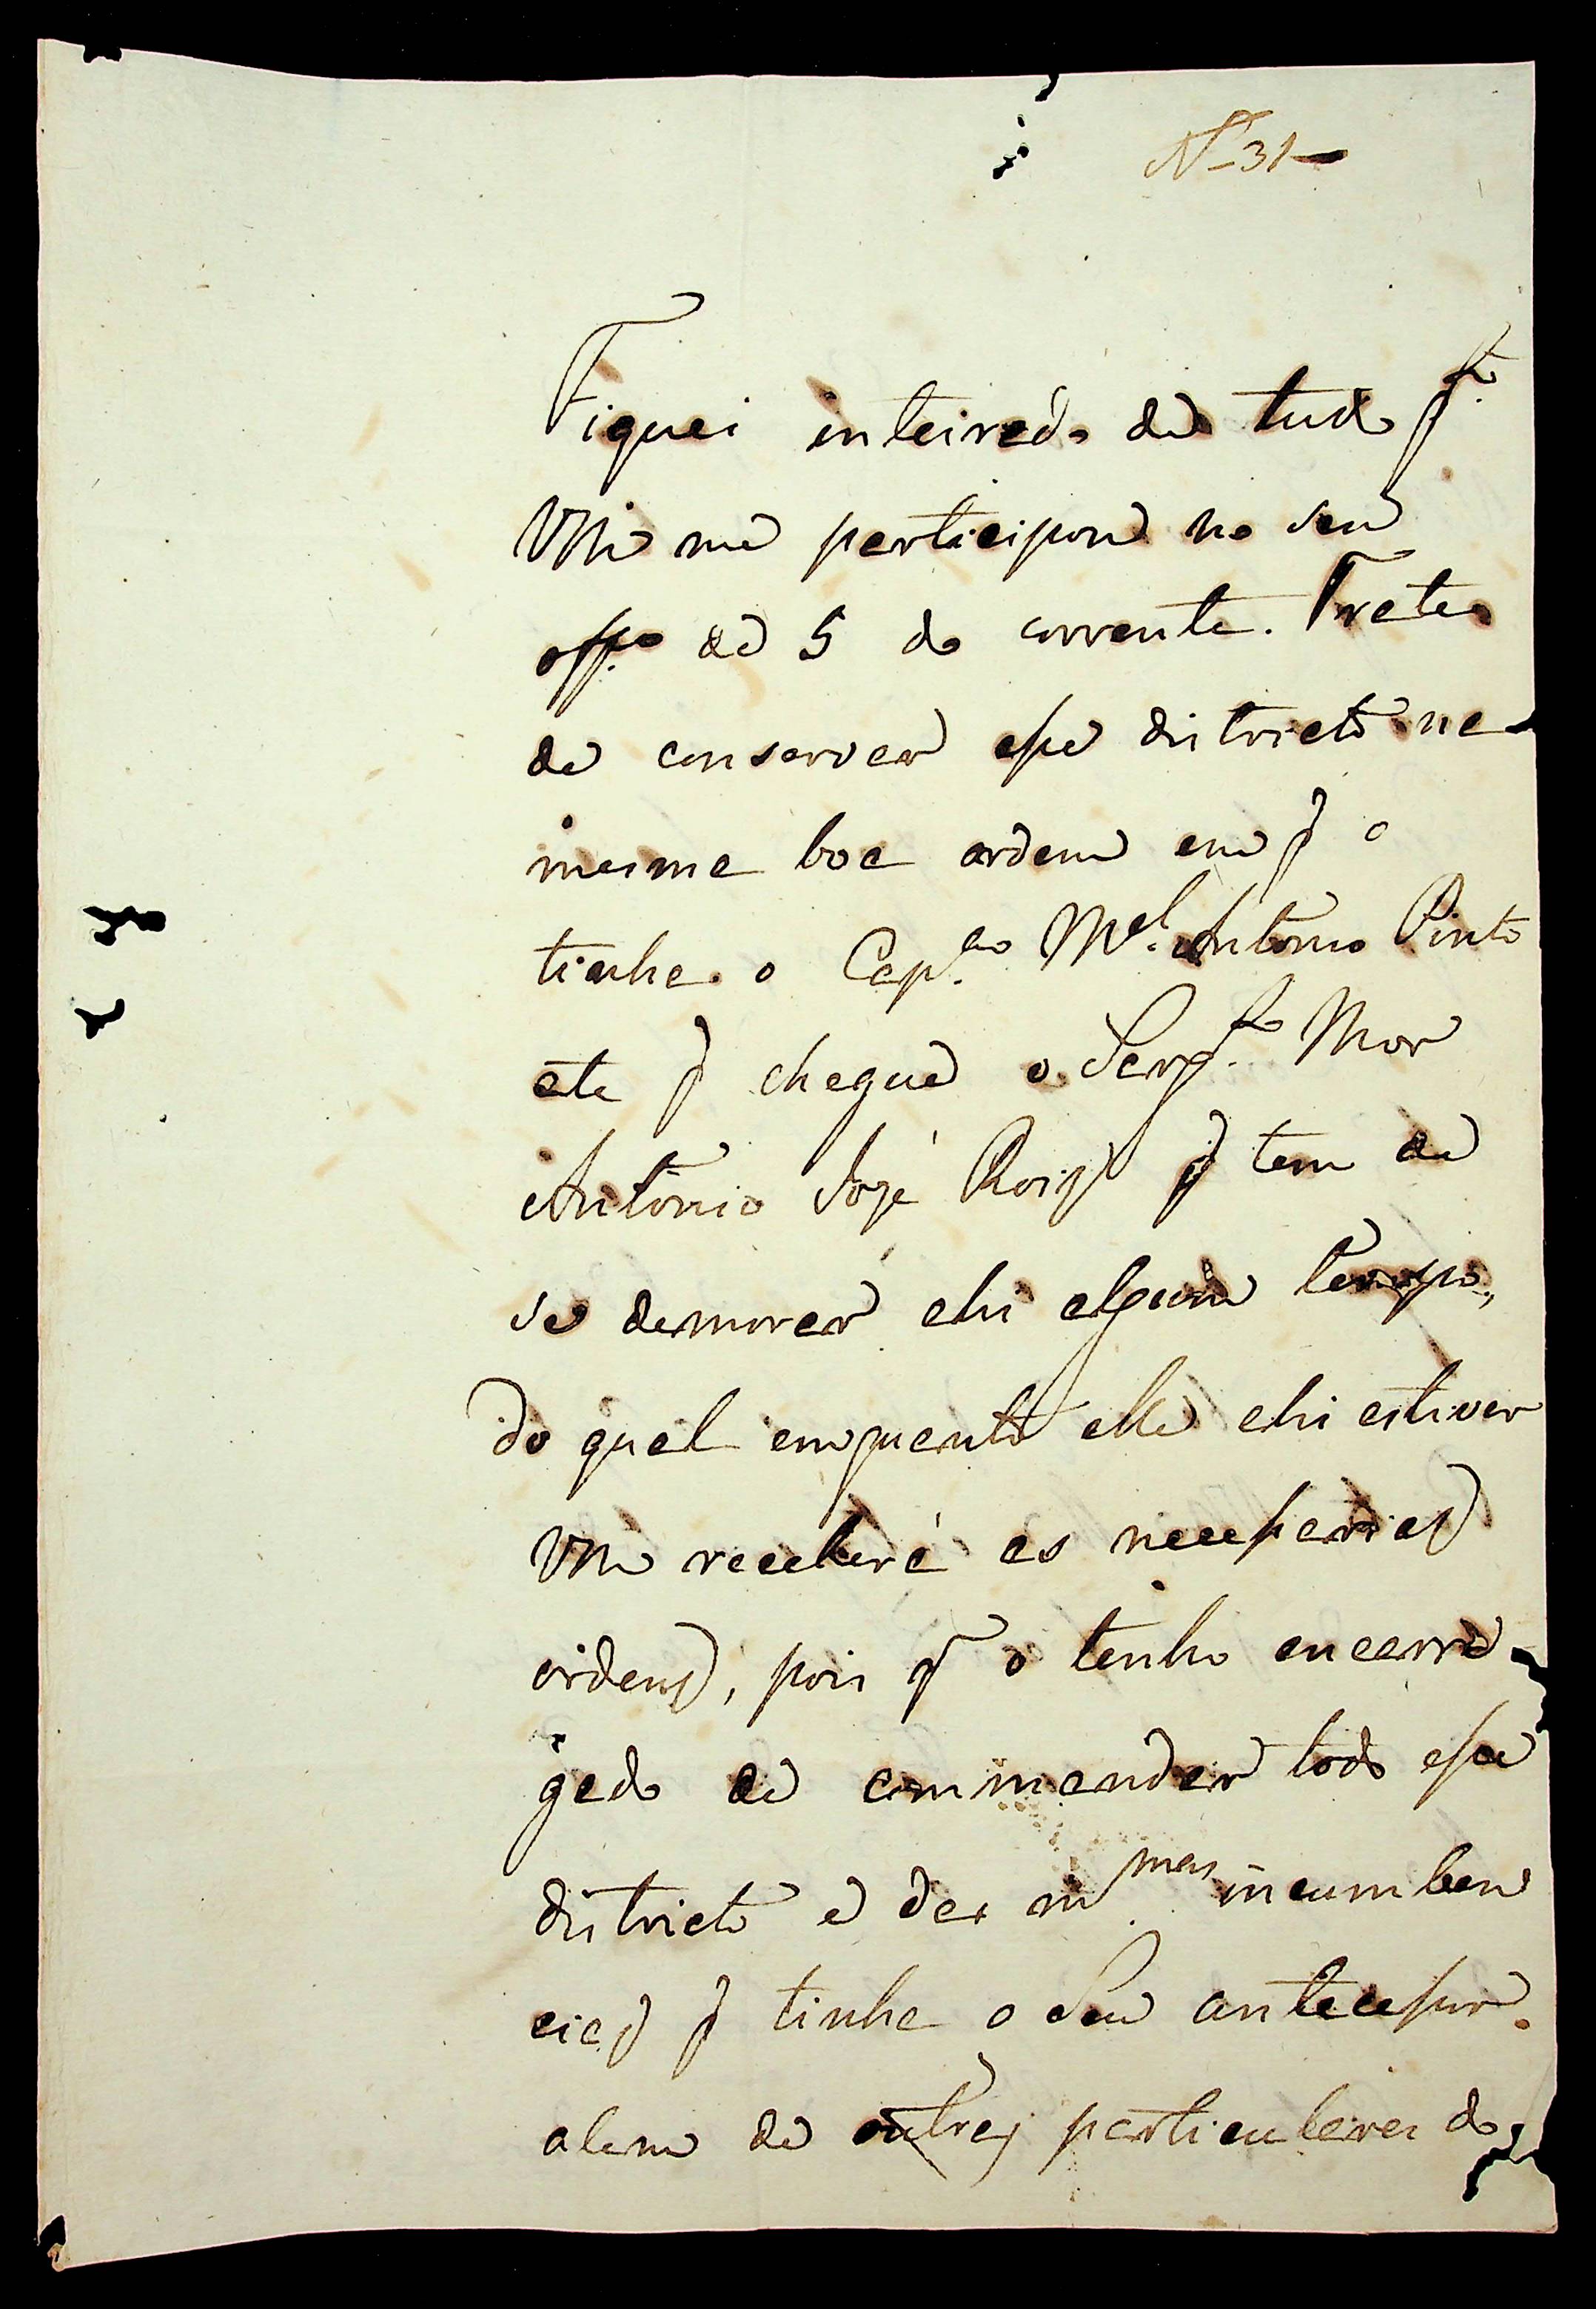 N.º 31
Fiquei inteirado de tudo q.to
Vm.ce me participou no seu
off.º de 5 do corrente. Trate
de conservar esse districto na
mesma boa ordem em q̃ o
tinha o Cap.am M.el Antonio Pinto
ate q̃ chegue o Sarg.to Mor
Antonio Joze Roiz q̃ tem de
se demorar ahi algum tempo,
do qual emquanto elle ahi estiver
Vm.ce receberá as necessarias
ordens, pois q̃ o tenho encarre-
gado de commandar todo esse
districto e das m.mas incumben
cias q̃ tinha o seu antecessor
alem de outras particulares do